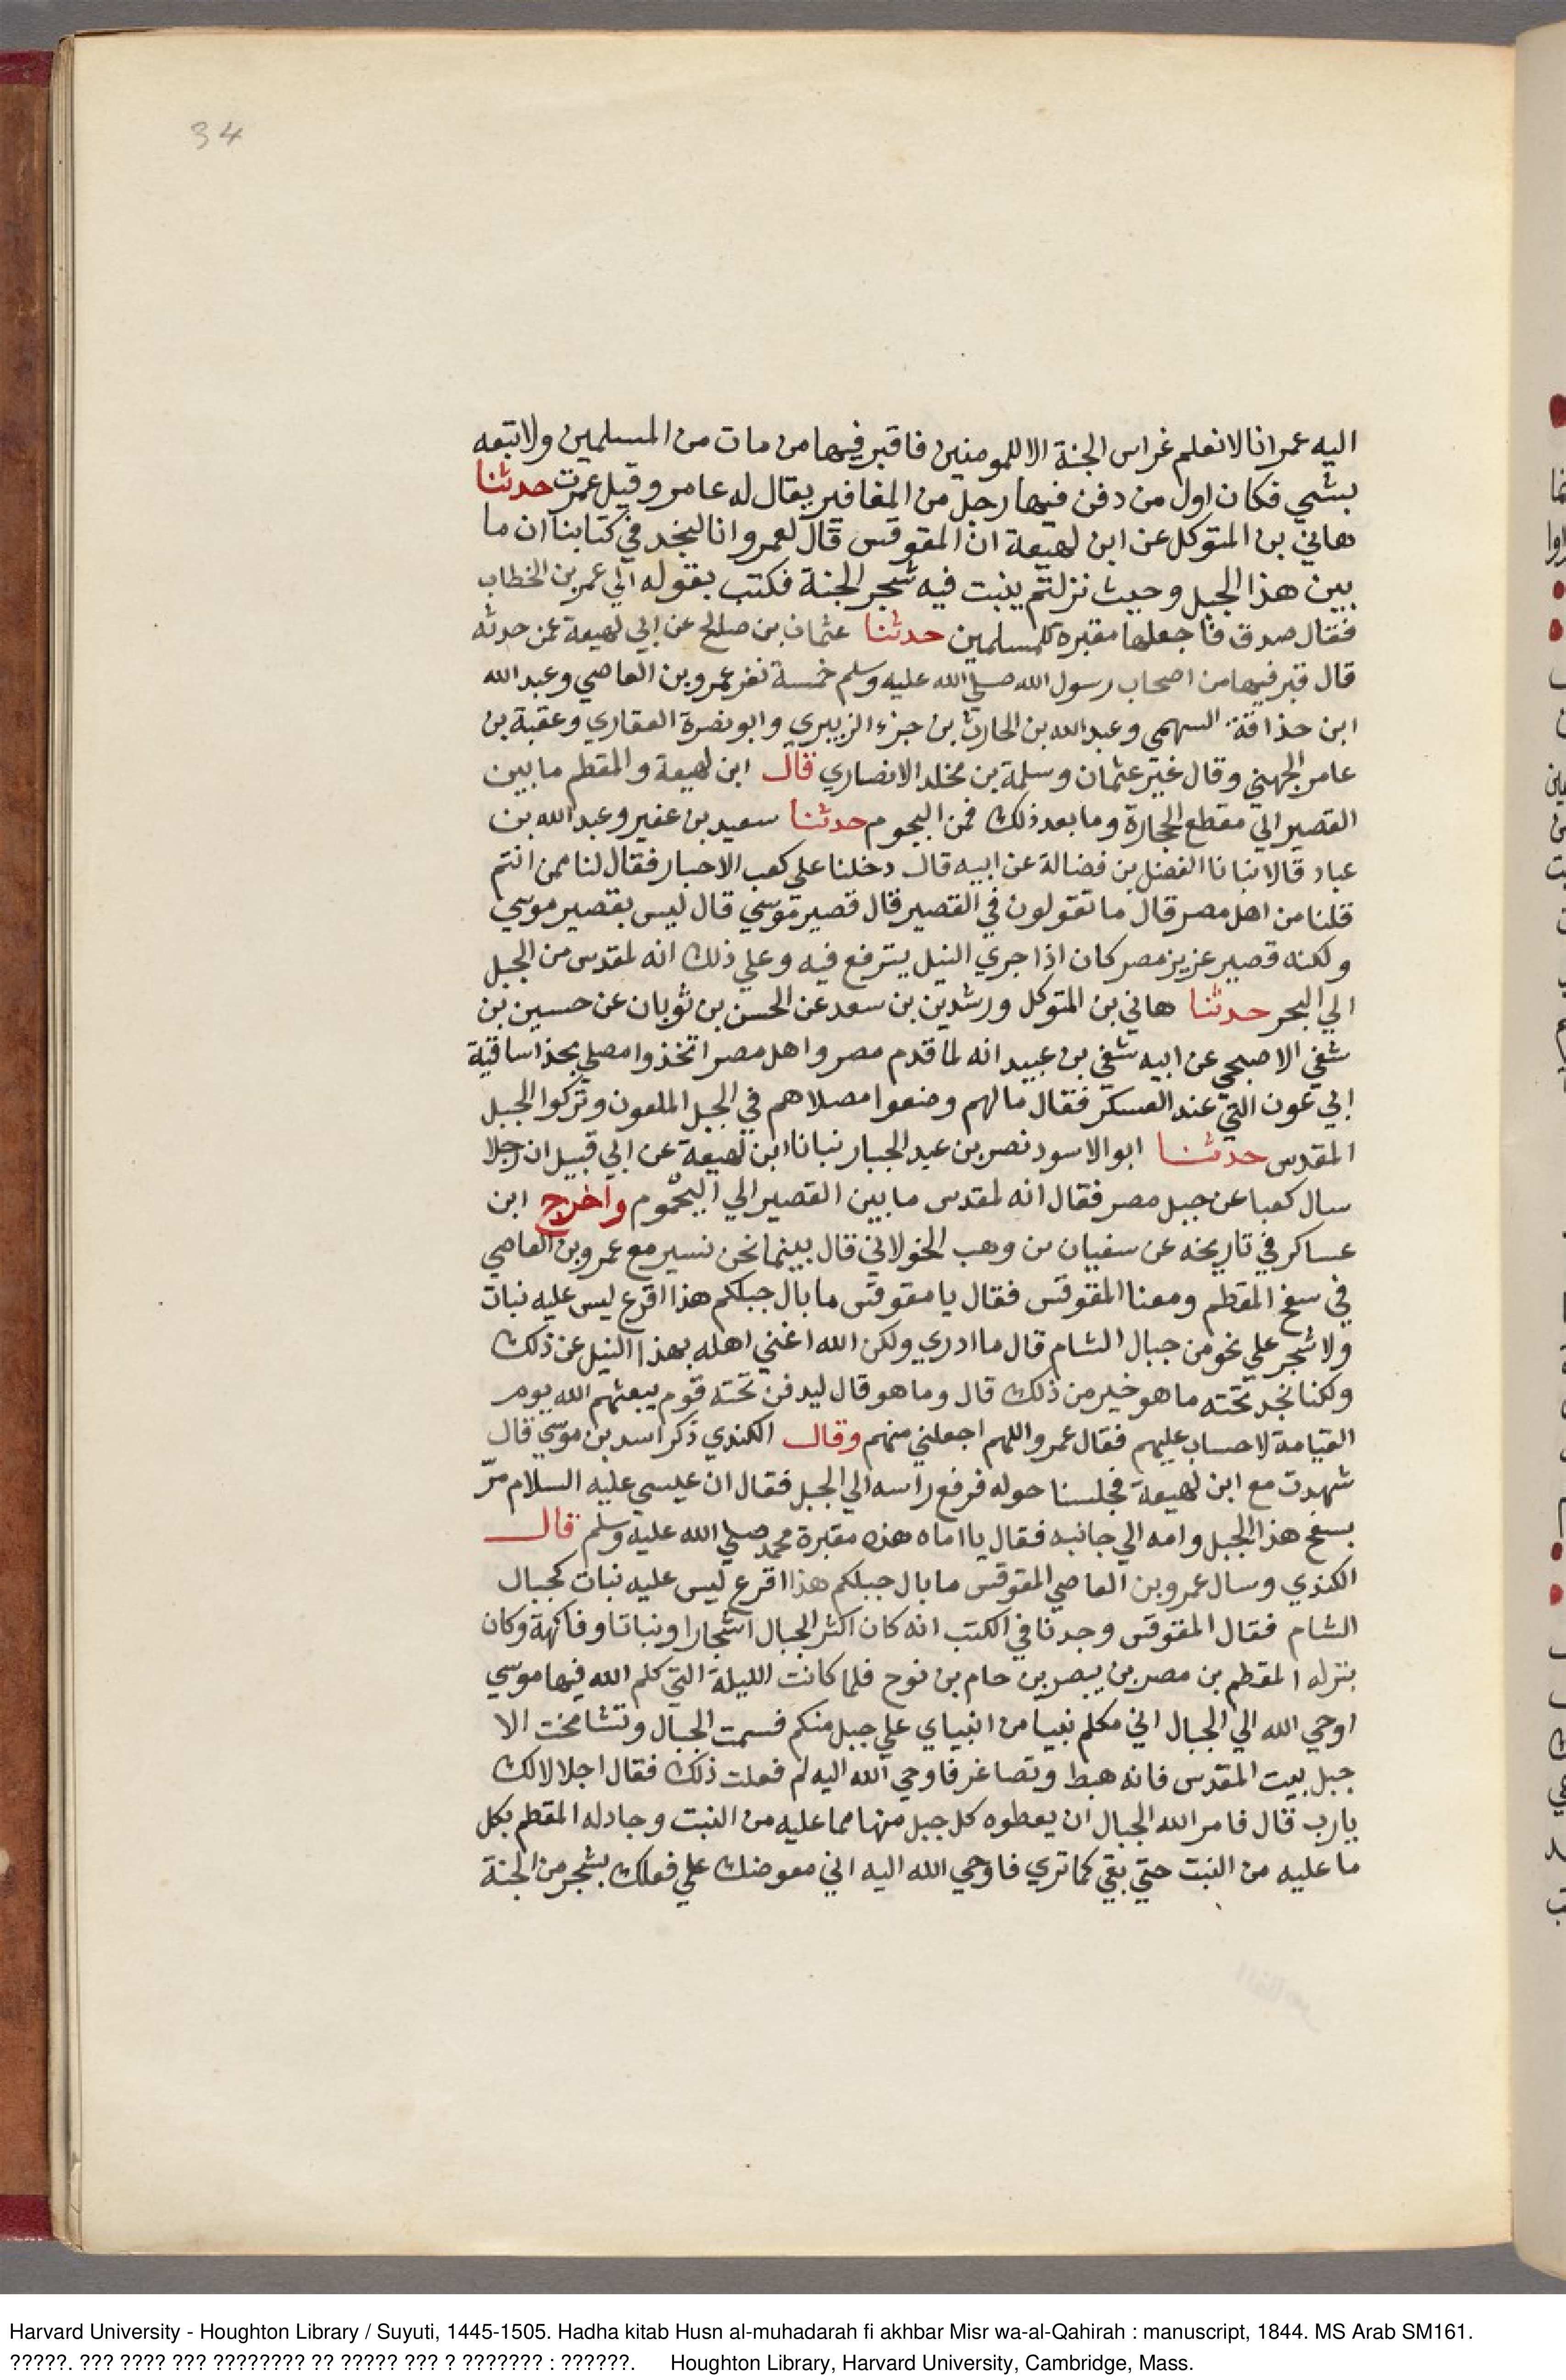 34
اليه عمر انا لا نعلم غراس الجنة الا للمومنين فاقبر فيها من مات من المسلمين ولا تبعه
بشي فكان اول من دفن فيها رجل من المغافير يقال له عامر وقيل عمرت حدثنا
هاني بن المتوكل عن ابن لهيعة ان المقوقس قال لعمرو انا لنجد في كتابنا ان ما
بين هذا الجبل وحيث نزلتم ينبت فيه شجر الجنة فكتب بقوله الي عمر بن الخطاب
فقال صدق فاجعلها مقبرة للمسلمين حدثنا عثمان بن صالح عن ابي لهيعة عمن حدثه
قال قبر فيها من اصحاب رسول الله صلي الله عليه وسلم خمسة نفر عمرو بن العاصي وعبد الله
ابن حذافة السهمي وعبد الله بن الحارث بن جزء الزبيري وابو نضرة الغفاري وعقبة بن
عامر الجهني وقال غير عثمان وسلمة بن مخلد الانصاري قال ابن لهيعة والمقطم ما بين
القصير الي مقطع الحجارة وما بعد ذلك فمن اليحوم حدثنا سعيد بن عفير وعبد الله بن
عباد قالا نبانا الفضل بن فضالة عن ابيه قال دخلنا علي كعب الاحبار فقال لنا ممن انتم
قلنا من اهل مصر قال ما تقولون في القصير قال قصير موسي قال ليس بقصير موسي
ولكنه قصير عزيز مصر كان اذا جري النيل يترفع فيه وعلي ذلك انه لمقدس من الجبل
الي البحر حدثنا هاني بن المتوكل ورشدين بن سعد عن الحسن بن ثوبان عن حسين بن
شفي الاصبحي عن ابيه شفي بن عبيد انه لما قدم مصر واهل مصر اتخذوا مصلي بحذا ساقية
ابي عون التي عند العسكر فقال ما لهم وضعوا مصلاهم في الجبل الملعون وتركوا الجبل
المقدس حدثنا ابو الاسود نصر بن عبد الجبار نبانا ابن لهيعة عن ابي قبيل ان رجلا
سال كعبا عن جبل مصر فقال انه لمقدس ما بين القصير الي اليحموم واخرج ابن
عساكر في تاريخه عن سفيان بن وهب الخولاني قال بينما نحن نسير مع عمرو بن العاصي
في سفح المقطم ومعنا المقوقس فقال يا مقوقس ما بال جبلكم هذا اقرع ليس عليه نبات
ولا شجر علي نحو من جبال الشام قال ما ادري ولكن الله اغني اهله بهذا النيل عن ذلك
ولكنا نجد تحته ما هو خير من ذلك قال وما هو قال ليدفن تحته قوم يبعثهم الله يوم
القيامة لا حساب عليهم فقال عمرو اللهم اجعلني منهم وقال الكندي ذكر اسد بن موسي قال
شهدت مع ابن لهيعة فجلسنا حوله فرفع راسه الي الجبل فقال ان عيسي عليه السلام مرّ
بسفح هذا الجبل وامه الي جانبه فقال يا اماه هذه مقبرة محمد صلي الله عليه وسلم قال
الكندي وسال عمرو بن العاصي المقوقس ما بال جبلكم هذا اقرع ليس عليه نبات كجبال
الشام فقال المقوقس وجدنا في الكتب انه كان اكثر الجبال اشجارا ونباتا وفاكهة وكان
بنزله المقطم بن مصر بن بيصر بن حام بن نوح فلما كانت الليلة التي كلم الله فيها موسي
اوحي الله الي الجبال اني مكلم نبيا من انبياي علي جبل منكم فسمت الجبال وتشامخت الا
جبل بيت المقدس فانه هبط وتصاغر فاوحي الله اليه لم فعلت ذلك فقال اجلالا لك
يارب قال فامر الله الجبال ان يعطوه كل جبل منها مما عليه من النبت وجادله المقطم بكل
ما عليه من النبت حتي بقي كما تري فاوحي الله اليه اني معوضك علي فعلك بشجر من الجنة
Harvard University - Houghton Library / Suyuti, 1445-1505. Hadha kitab Husn al-muhadarah fi akhbar Misr wa-al-Qahirah : manuscript, 1844. MS Arab SM161.
?????. ??? ???? ??? ???????? ?? ????? ??? ? ??????? : ??????. Houghton Library, Harvard University, Cambridge, Mass.